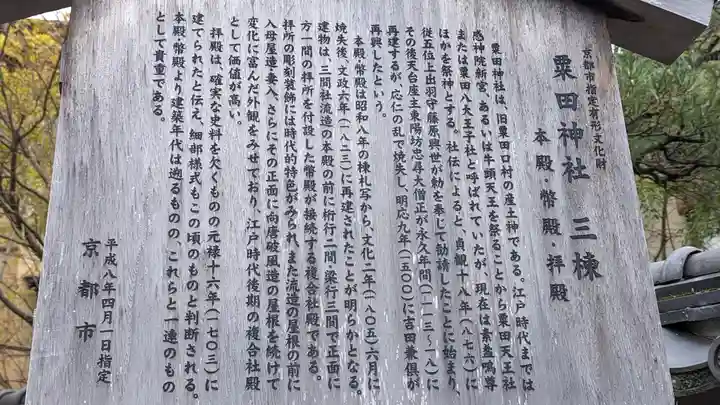 京都市指定有形文化財
粟田神社 三棟
本殿・幣殿・拝殿
粟田神社は、旧粟田口村の産土神である。江戸時代までは
感神院新宮、あるいは牛頭天王を祭ることから粟田天王社
または粟田八大王子社と呼ばれていたが、現在は素盞鳴尊
ほかを祭神とする。社伝によると、貞観十八年(八七六)に
従五位上出羽守藤原興世が勅を奉じて勧請したことに始まり、
その後天台座主東陽坊忠尋大僧正が永久年間(一一一三~一八)に
再建するが、応仁の乱で焼失し、明応九年(一五〇〇)に吉田兼倶が
再興したという。
本殿・幣殿は昭和八年の棟札写から、文化二年(一八〇五)六月に
焼失後、文政六年(一八二三)に再建されたことが明らかとなる。
建物は、三間社流造の本殿の前に桁行二間・梁行三間で正面に
方一間の拝所を付設した幣殿が接続する複合社殿である。
拝所の彫刻装飾には時代的特色がみられ、また流造の屋根の前に
入母屋造・妻入、さらにその正面に向唐破風造の屋根を続けて
変化に富んだ外観をみせており、江戸時代後期の複合社殿
として価値が高い。
拝殿は、確実な史料を欠くものの元禄十六年(一七〇三)に
建てられたと伝え、細部様式もこの頃のものと判断される。
本殿・幣殿より建築年代は遡るものの、これらと一連のもの
として貴重である。
平成八年四月一日指定
京都市